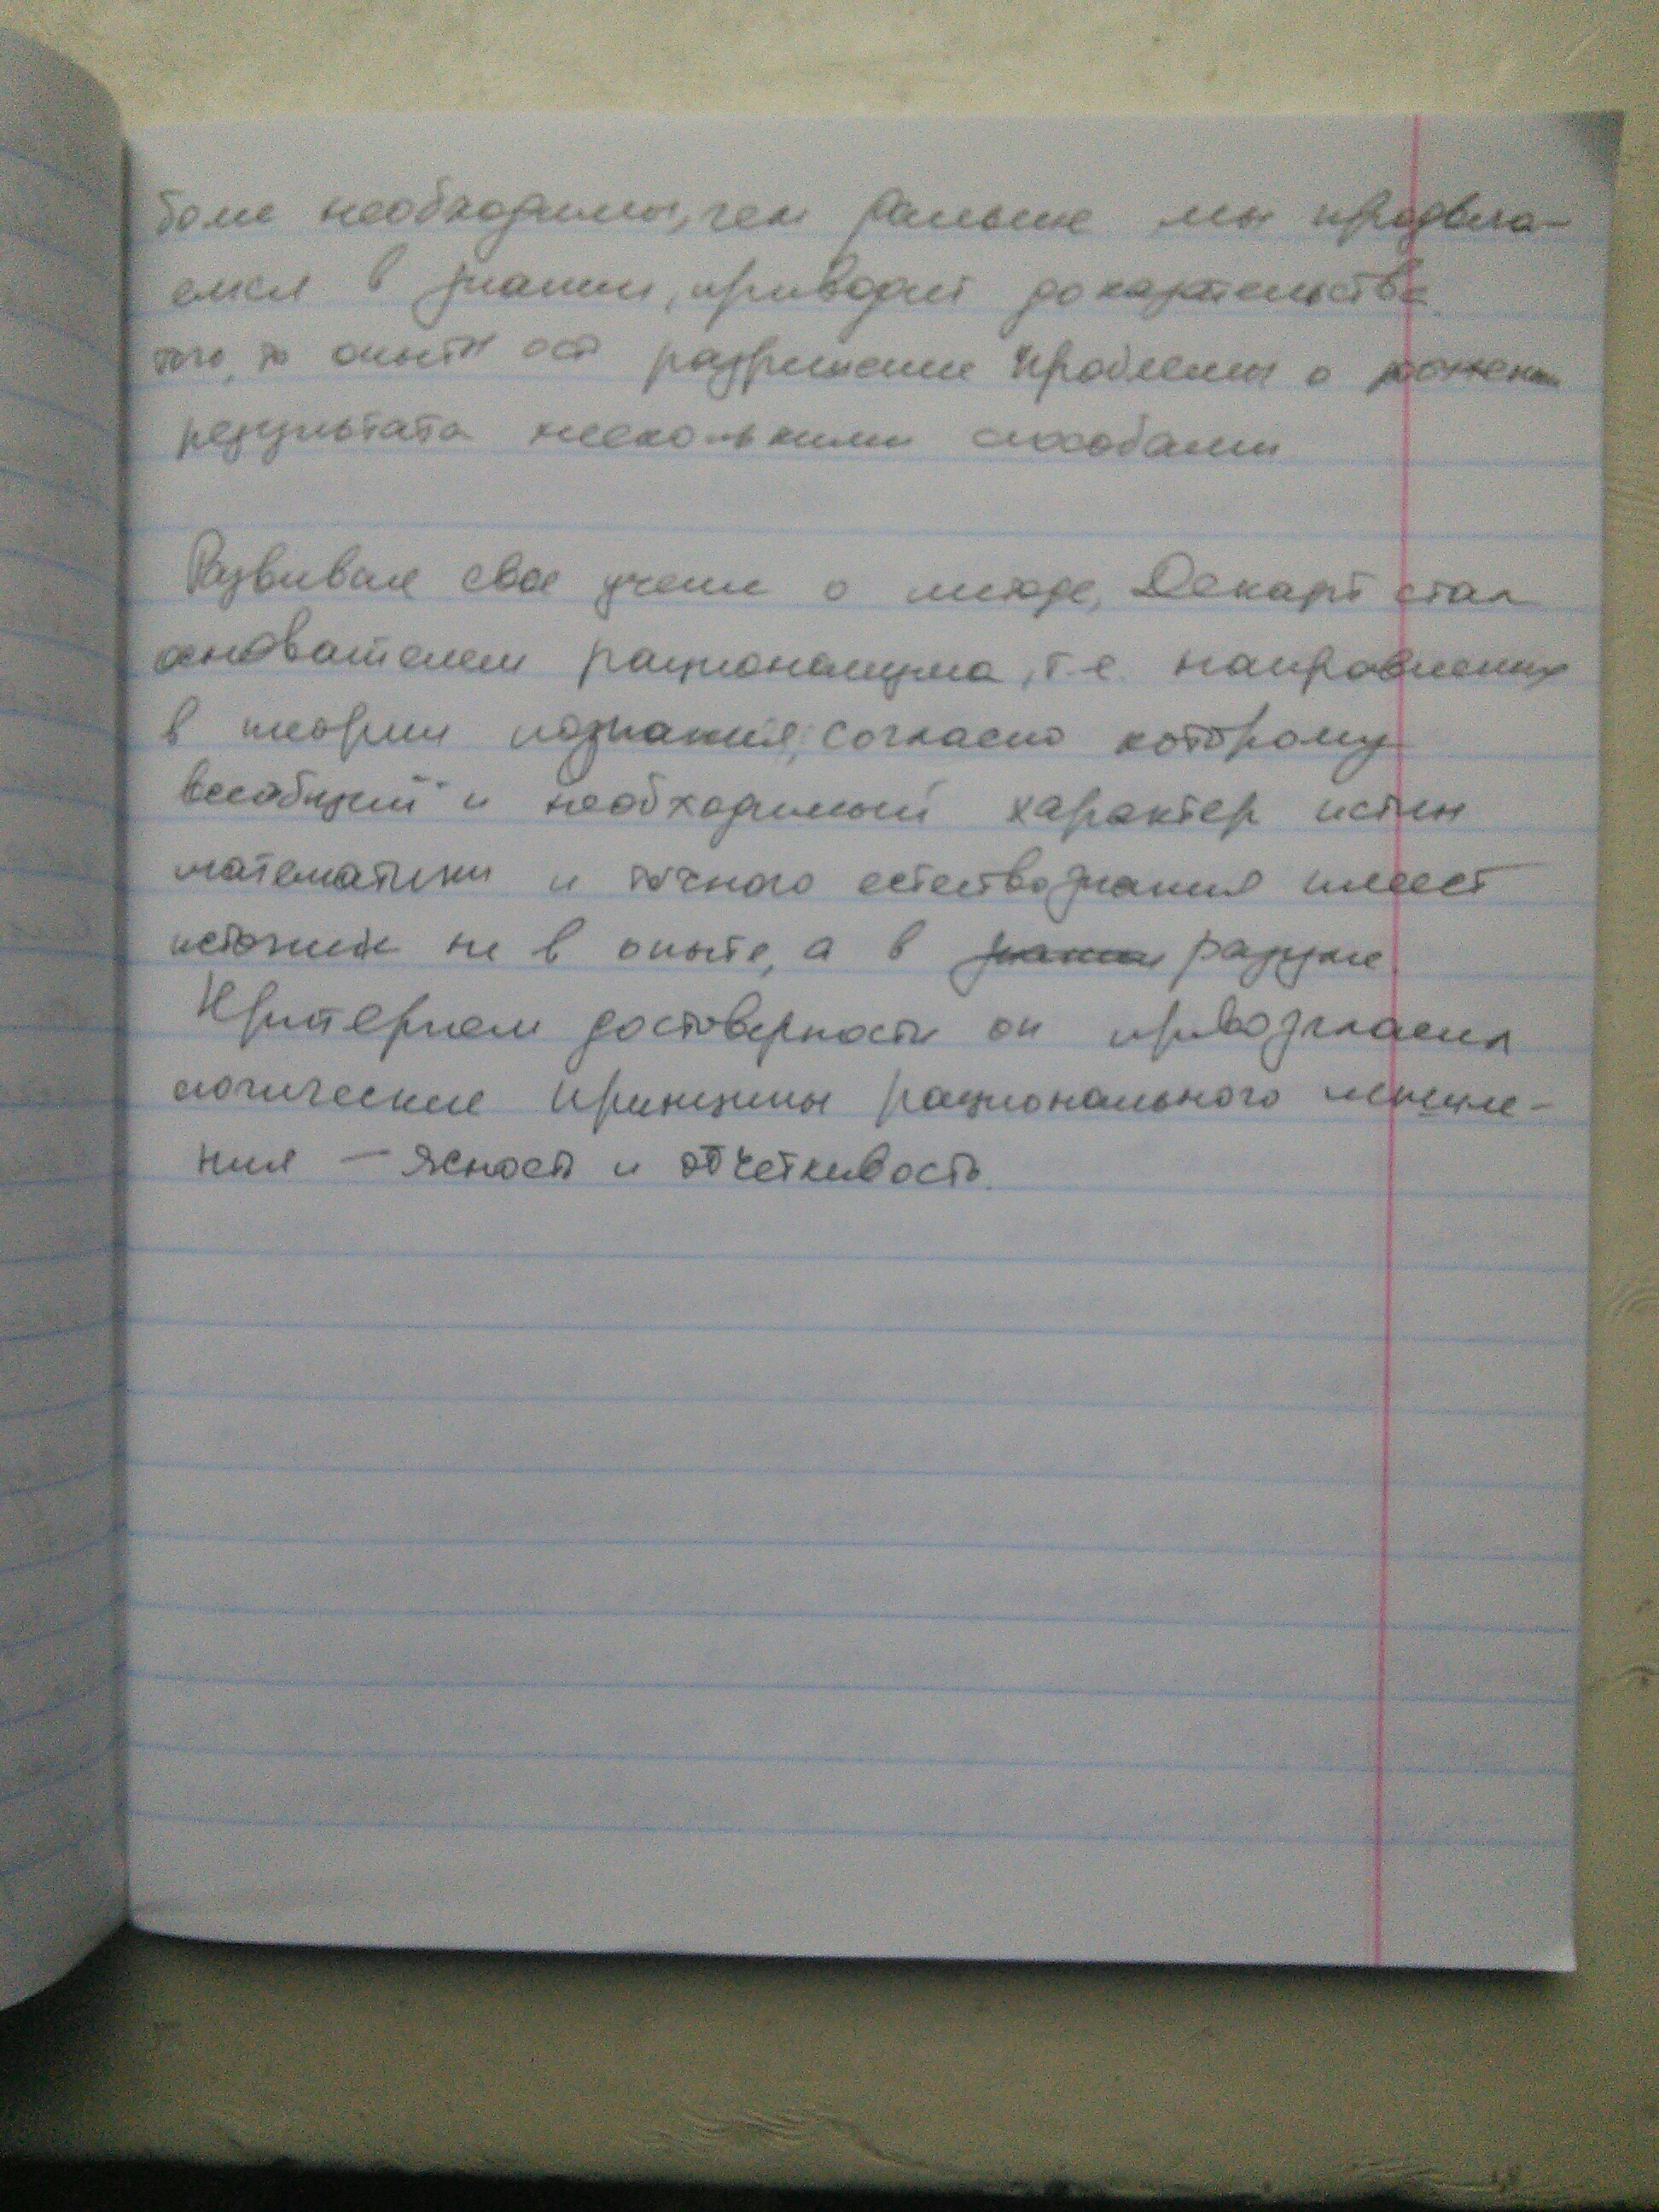 более необходимы, чем дальше мы продвига-
емся в знании, приводит доказательства
того, то опыты ост разрешение проблемы о
результата несколькими способами
Развивая свое учение о методе, Декарт стал
основателем рационализма, т.е. направления
в теории познания, согласно которому
всеобщий и необходимый характер истин
математики и точного естествознания имеет
источник не в опыте, а в разуме.
Критерием достоверности он провозгласил
логические принципы рационального мышле-
ния – ясность и отчетливость.